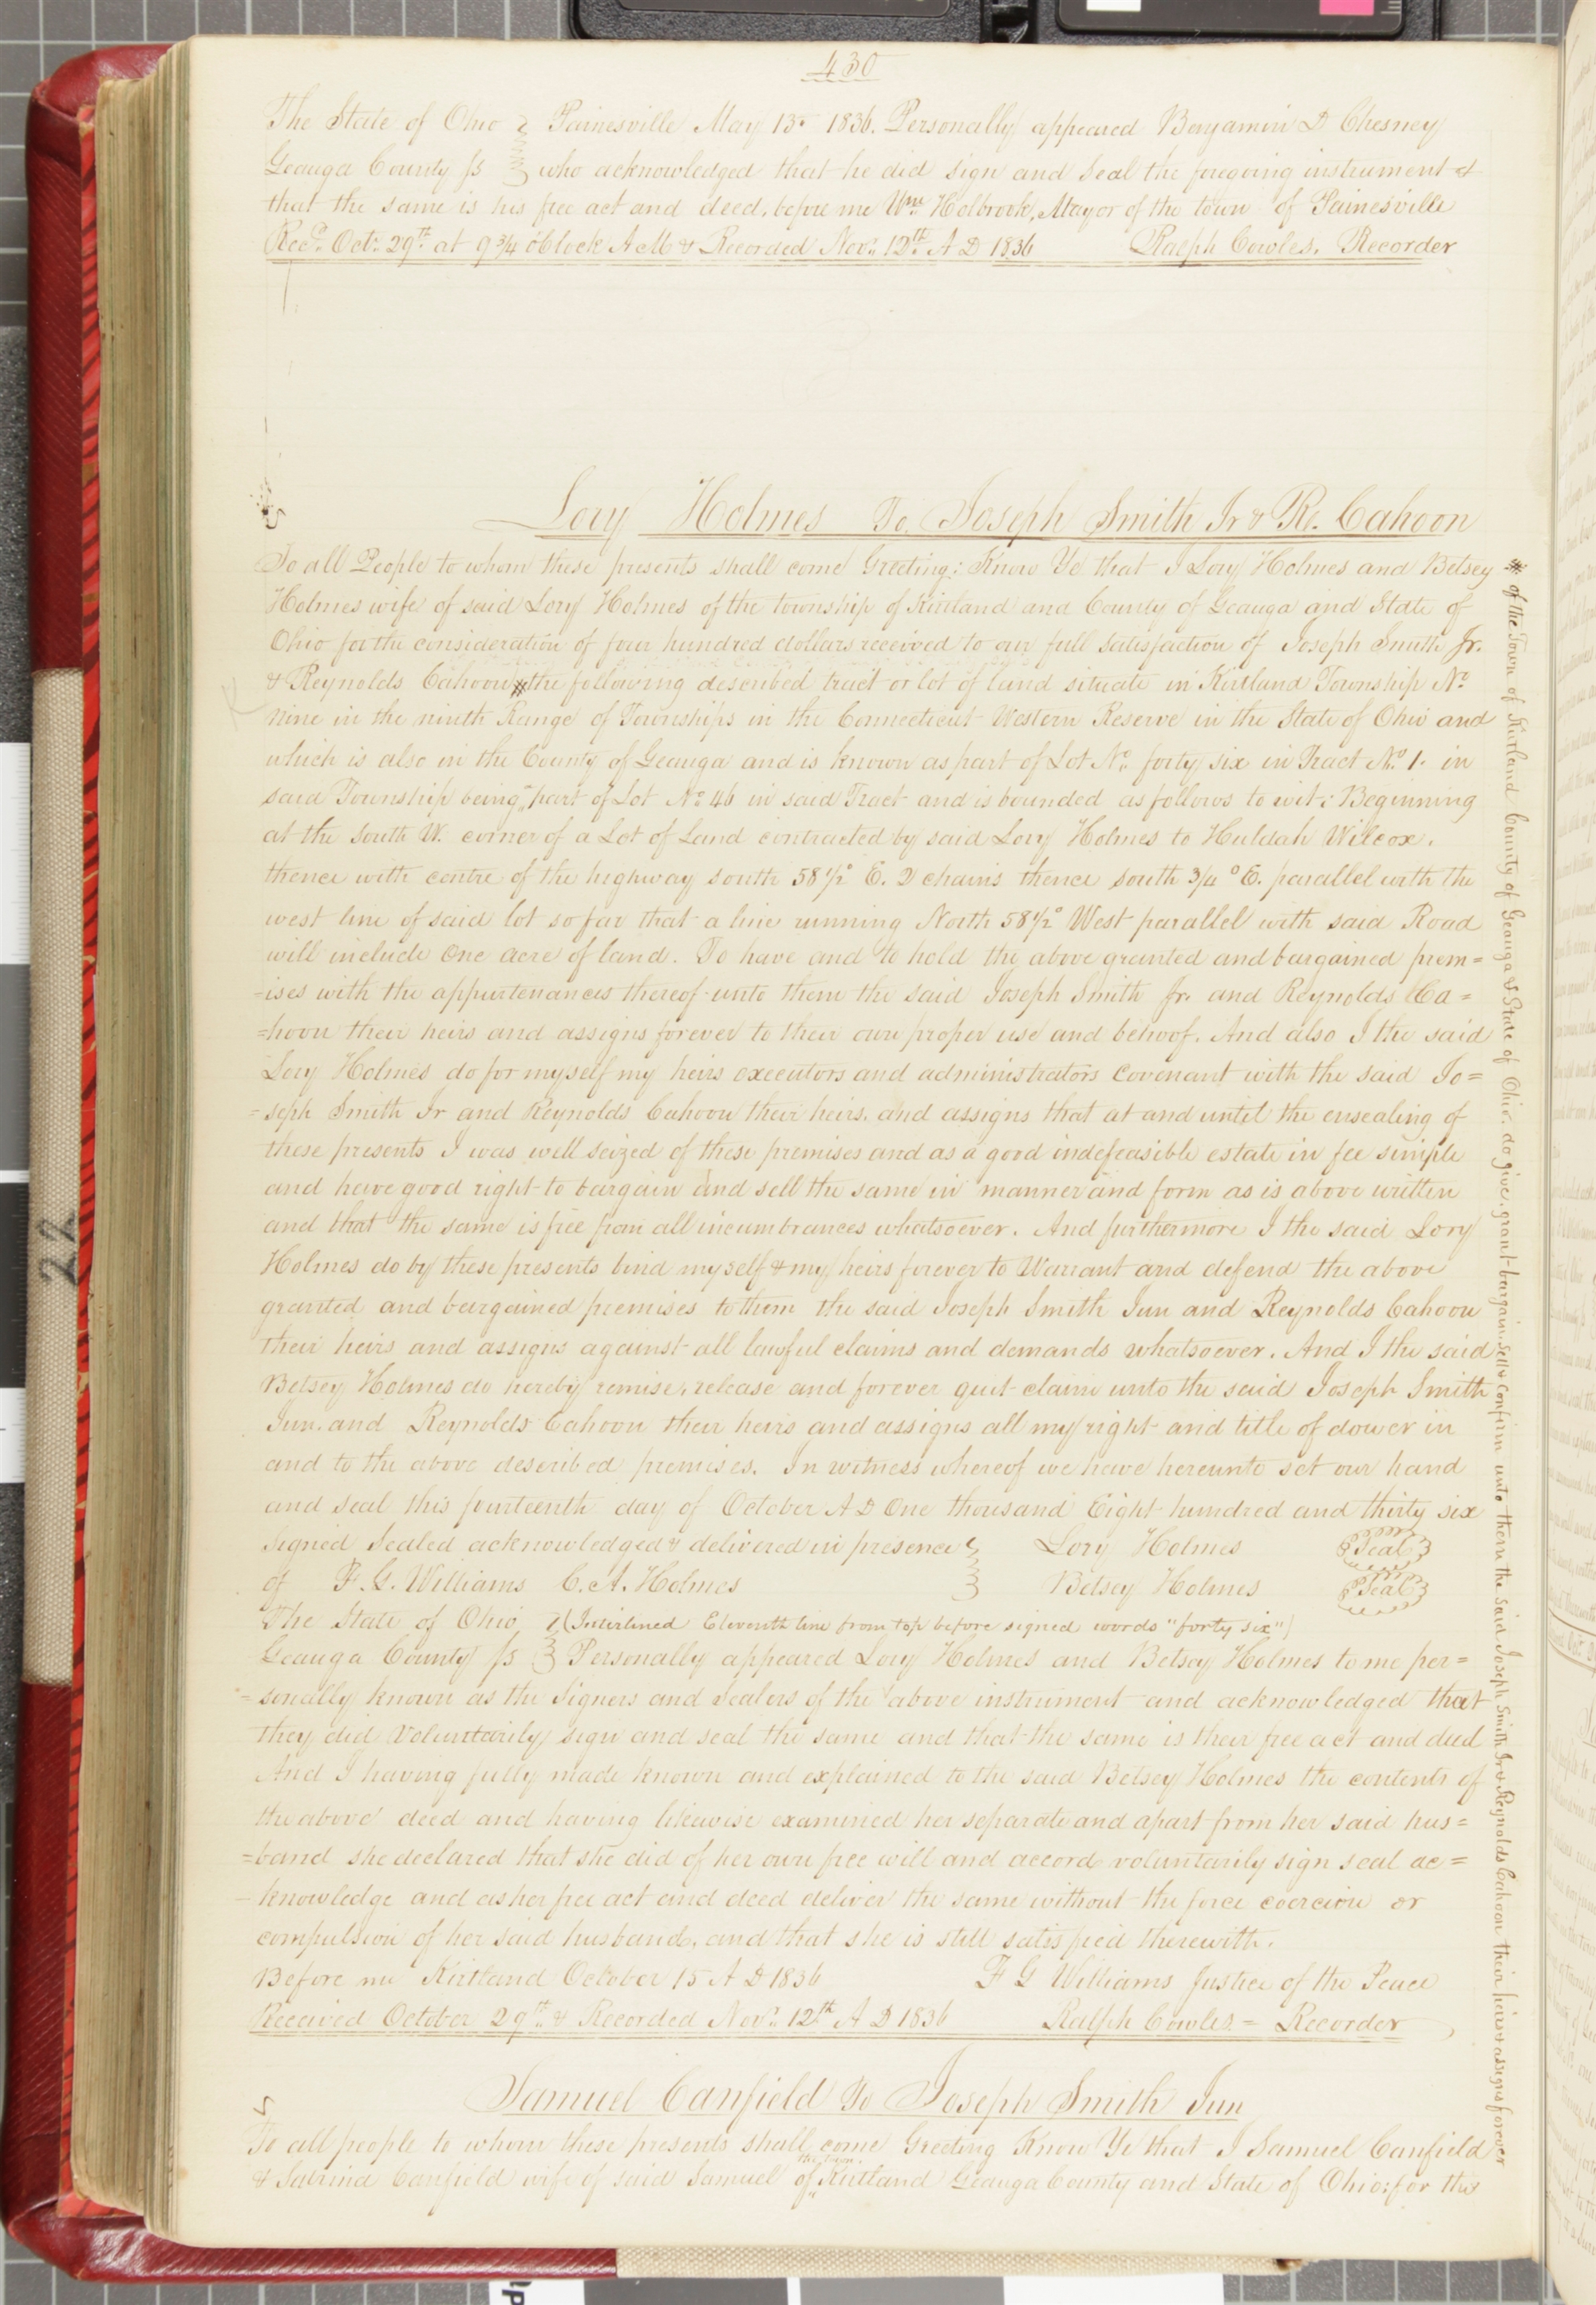 430
The State of Ohio } Painesville May 13th 1836. Personally appeared Benjamin D Chesney
Geauga County ss } who acknowledged that he did sign and seal the foregoing instrument &
that the same is his free act and deed, before me Wm Holbrook, Mayor of the town of Painesville
Recd. Oct. 29th at 9 3/4 o'Clock A M & Recorded Nov. 12th A D 1836 Ralph Cowles, Recorder
Lory Holmes To Joseph Smith Jr & R. Cahoon
To all People to whom these presents shall come Greeting: Know Ye that I Lory Holmes and Betsey
Holmes wife of said Lory Holmes of the township of Kirtland and County of Geauga and State of
Ohio for the consideration of four hundred dollars received to our full satisfaction of Joseph Smith Jr.
& Reynolds Cahoon # the following described tract or lot of land situate in Kirtland Township No.
nine in the ninth Range of Townships in the Connecticut Western Reserve in the State of Ohio and
which is also in the County of Geauga and is known as part of Lot No. forty six in Tract No. 1. in
said Township being part of Lot No 46 in said Tract and is bounded as follows to wit: Beginning
at the south W. corner of a Lot of Land contracted by said Lory Holmes to Huldah Wilcox,
thence with centre of the highway south 58 1/2° E. 2 chains thence south 3/4° E. parallel with the
west line of said lot so far that a line running North 58 1/2° West parallel with said Road
will include One acre of land. To have and to hold the above granted and bargained prem=
=ises with the appurtenances thereof unto them the said Joseph Smith Jr. and Reynolds Ca=
=hoon their heirs and assigns forever to their own proper use and behoof. And also I the said
Lory Holmes do for myself my heirs executors and administrators Covenant with the said Jo=
=seph Smith Jr and Reynolds Cahoon their heirs, and assigns that at and until the ensealing of
these presents I was well seized of these premises and as a good indefeasible estate in fee simple
and have good right to bargain and sell the same in manner and form as is above written
and that the same is free from all incumbrances whatsoever. And furthermore I the said Lory
Holmes do by these presents bind myself & my heirs forever to Warrant and defend the above
granted and bargained premises to them the said Joseph Smith Jun and Reynolds Cahoon
their heirs and assigns against all lawful claims and demands whatsoever. And I the said
Betsey Holmes do hereby remise, release and forever quit claim unto the said Joseph Smith
Jun. and Reynolds Cahoon their heirs and assigns all my right and title of dower in
and to the above described premises. In witness whereof we have hereunto set our hand
and seal this fourteenth day of October A D One thousand Eight hundred and thirty six
Signed Sealed acknowledged & delivered in presence } Lory Holmes Seal
of F. G. Williams C. A. Holmes } Betsey Holmes Seal
The State of Ohio } (Interlined Eleventh line from top before signed words "forty six")
Geauga County ss } Personally appeared Lory Holmes and Betsey Holmes to me per=
=sonally known as the Signers and Sealers of the above instrument and acknowledged that
they did Voluntarily sign and seal the same and that the same is their free act and deed
And I having fully made known and explained to the said Betsey Holmes the contents of
the above deed and having likewise examined her separate and apart from her said hus=
=band she declared that she did of her own free will and accord voluntarily sign seal ac=
knowledge and as her free act and deed deliver the same without the force coercion or
compulsion of her said husband, and that she is still satisfied therewith.
Before me Kirtland October 15 A D 1836 F G Williams Justice of the Peace
Received October 29th & Recorded Nov. 12th A D 1836 Ralph Cowles = Recorder
Samuel Canfield To Joseph Smith Jun
To all people to whom these presents shall come Greeting Know Ye that I Samuel Canfield
& Sabrina Canfield wife of said Samuel of the town Kirtland Geauga County and State of Ohio: for the
# of the Town of Kirtland County of Geauga & State of Ohio. do give. grant bargain. Sell & Confirm unto them the said Joseph Smith Jr & Reynolds Cahoon their heirs & assigns forever
22